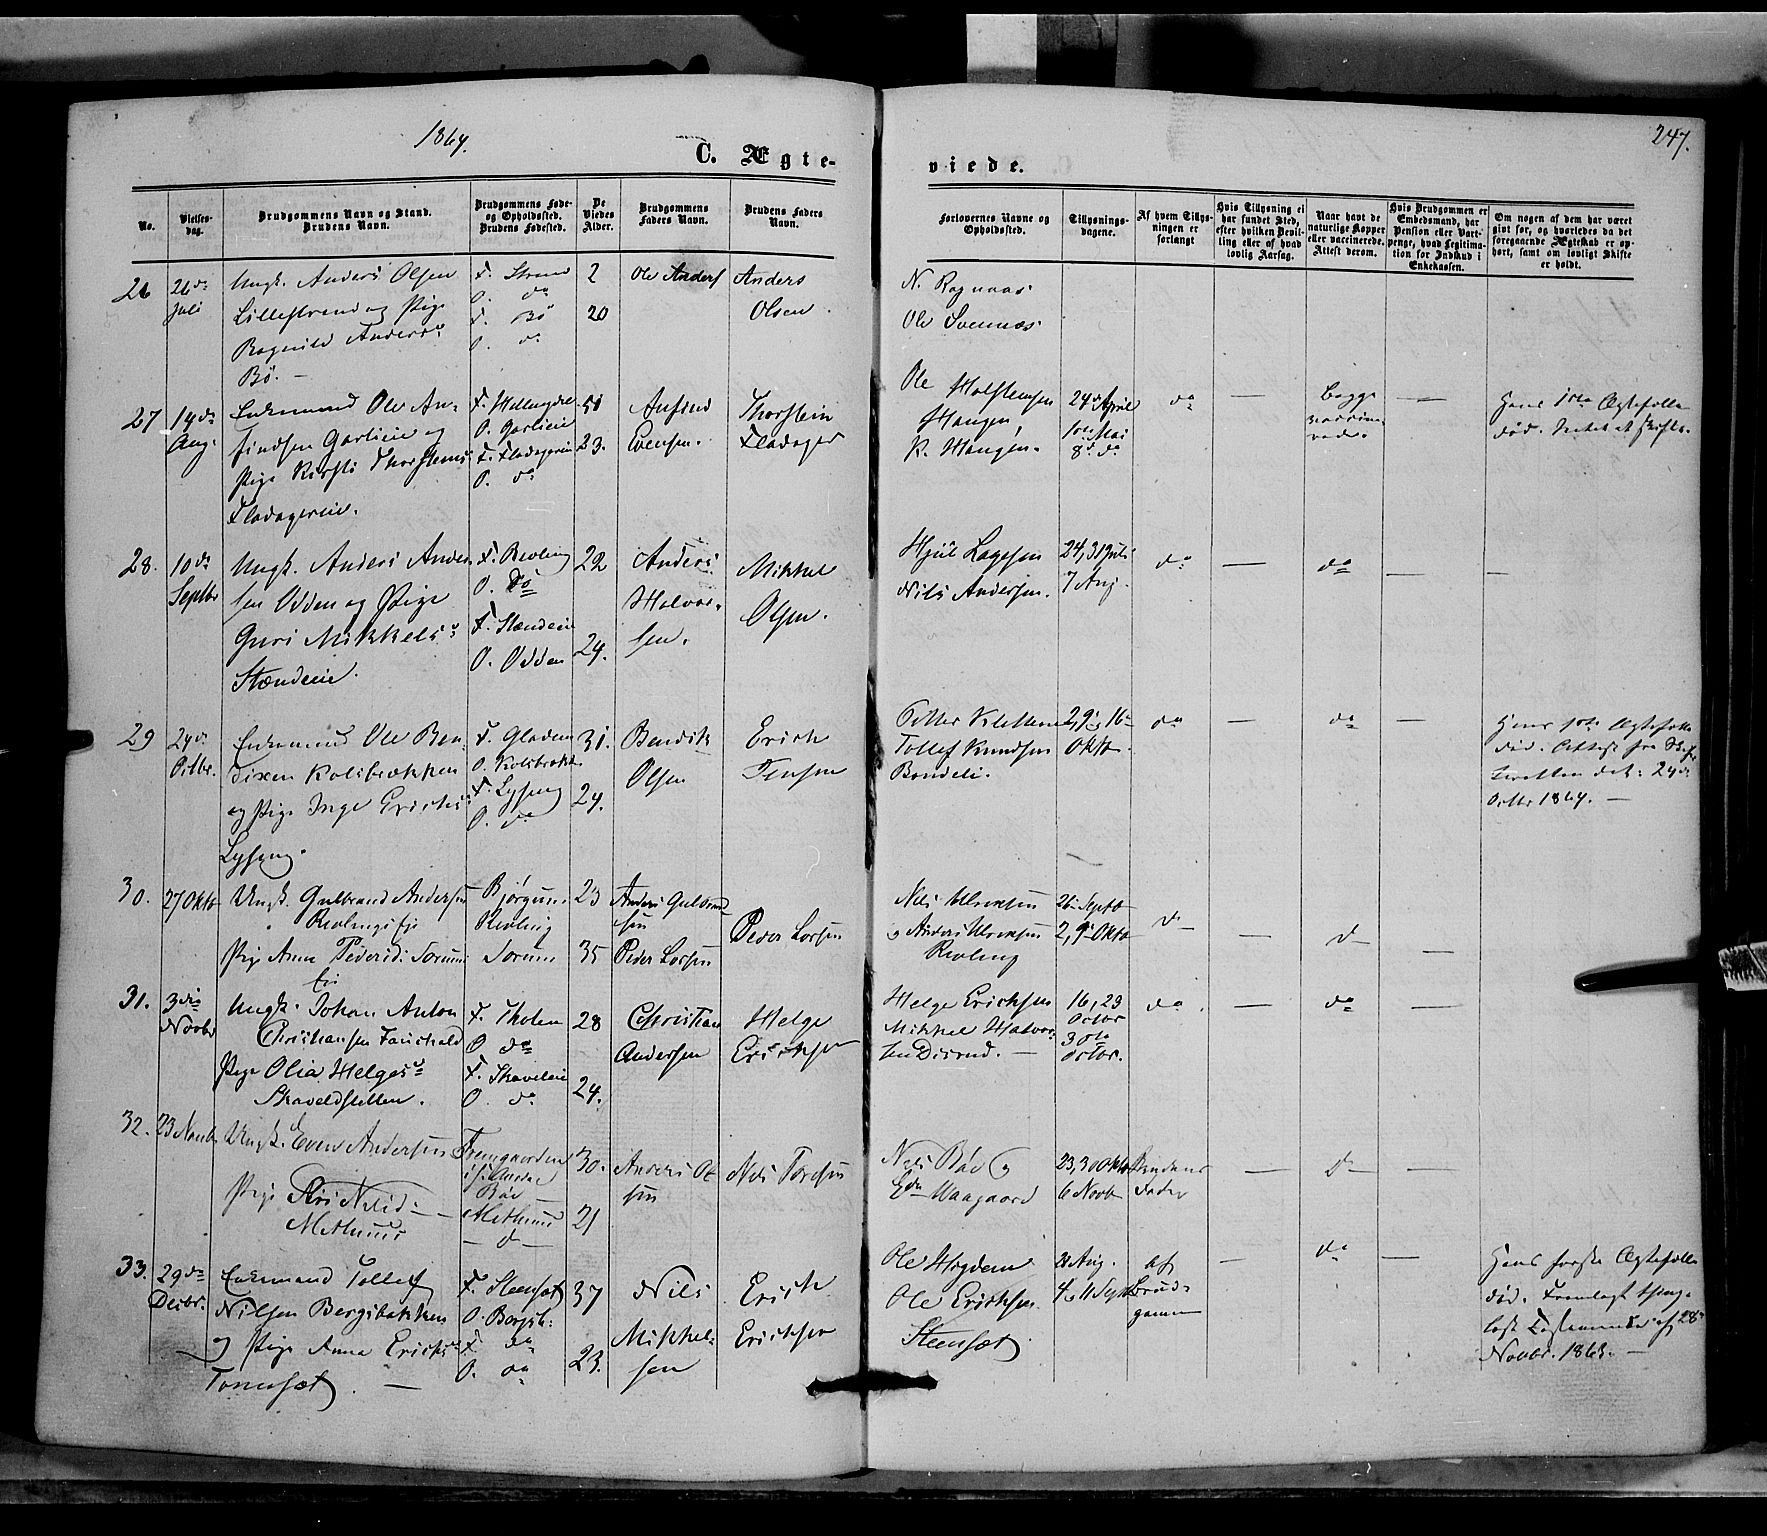 1864.
247.
C. Ægte-
viede.
No.
Vielses-
dag.
Brudgommens Navn og Stand.
Brudens Navn.
Brudgommens Føde-
og Opholdssted.
Brudens Fødested.
De
Viedes
Alder.
Brudgommens
Faders Navn.
Brudens Faders
Navn.
Forlovernes Navne og
Opholdssted.
Tillysnings-
dagene.
Af hvem Tillys-
ningen er
forlangt
Hvis Tillysning ei
har fundet Sted,
efter hvilken Bevil-
ling eller af hvad
lovlig Aarsag.
Naar havt de
naturlige Kopper
eller vaccinerede.
Attest derom.
Hvis Brudgommen er
Embedsmand, har
Pension eller Vart-
penge, hvad Legitima-
tion for Indskud i
Enkekassen.
Om nogen af dem har været
givt før, og hvorledes da det
foregaaende Ægteskab er op-
hørt, samt om lovligt Skifte
er holdt.
26
26de
Juli
Ungk. Anders Olsen
Lillestrand og Pige
Ragnild Andersd
Bø. —
F. Strand
O. do
F. Bø
O. do
2
20
Ole Anders
Anders
Olsen.
N. Ragnaas
Ole Svennes.
27
14de
Aug.
Enkemand Ole An-
findsen Garlieie og
Pige Kirsti Thorstens
Fladagereie.
F. Hallingdal
O. Garlieie
F. Fladagereie
O. do
51
23.
Anfind
Evensen.
Thorstein
Fladager
Ole Halstensen
Haugen,
K. Haugen.
24de April
1ste Mai
8de do
do
—
Begge
vaccine-
rede.
—
Hans 1ste Ægtefælle
død.
28.
10de
Septbr
Ungk. Anders Ander-
sen Odden og Pige
Guri Mikkels
Stændeie.
F. Revling
O. Do
F. Stændeie
O. Odden
22
24.
Anders
Halvor-
sen.
Mikkel
Olsen.
Hjul Lagesen
Nils Andersen.
24, 31 Juli
7 Aug.
do
—
do
—
—
29
24de
Octbr.
Enkemand Ole Ben-
dixen Kolsbrækken
og Pige Inge Erichs
Lyseng.
F. Gladem
O. Kolsbrækk
F. Lyseng
O. do
31.
24.
Bendik
Olsen
Erich
Jensen
Petter Kletten
Tollef Knudsen
Bondeli.
2, 9 og 16
Oktbr.
do
—
do
—
Hans 1ste Ægtefælle
død. Attest fra Skifte-
retten dat: 24de
Octbr 1864. —
30.
27 Oktb
Ungk. Gulbrand Andersen
Revlingseje
Pige Anna Pedersd: Sorum
Eje
Bjørgum
Revling
Sorum
23
35
Anders Gulbrand-
sen
Peder Larsen
Peder Larsen
Nils Ulriksen
og Anders Ulriksen
Revling
26 Septb
2, 9 Oktb
do
do
—
31.
3die
Novbr
Ungk. Johan Anton
Christiansen Fauchald
Pige Olia Helges
Skaveldstellen.
F. Tholen
O do
F. Skaveleie
O. do
28
24.
Christian
Andersen
Helge
Erichsen
Helge Erichsen
Mikkel Halvor-
sen Disrud. —
16, 23
Octbr
30te
Octbr.
do
—
do
—
32.
23 Novb
Ungk. Even Andersen
Pige Siri Nilsd:
Methuus
Bøe
Methuus
do
30.
21
Anders Ol-
sen
Nils Torsen
Nils Bøe og
Edv Haagaard
23, 30 Oktb
6 Novb
Brudens
Fader
—
do
—
33.
29de
Decbr.
Enkemand Tollef
Nilsen Bergsbakken
og Pige Anna Erichs
Tonesæt. —
F. Steensæt
O. Bergsb:
F. do
O. do
37
23.
Nils
Mikkel-
sen
Erich
Erichsen
Ole Høgden
Ole Erichsen
Steensæt
21 Aug.
4 og 11 Sept
af
Brud-
gommen
—
do
—
Hans første Ægtefælle
død. Fremlagt thing-
læst Testamente af 28de
Novbr. 1863. —